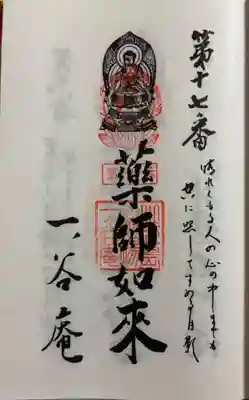 第十七番
晴れくもる人の心の中までも
空に照してすめる月影
藥師如來
一谷庵